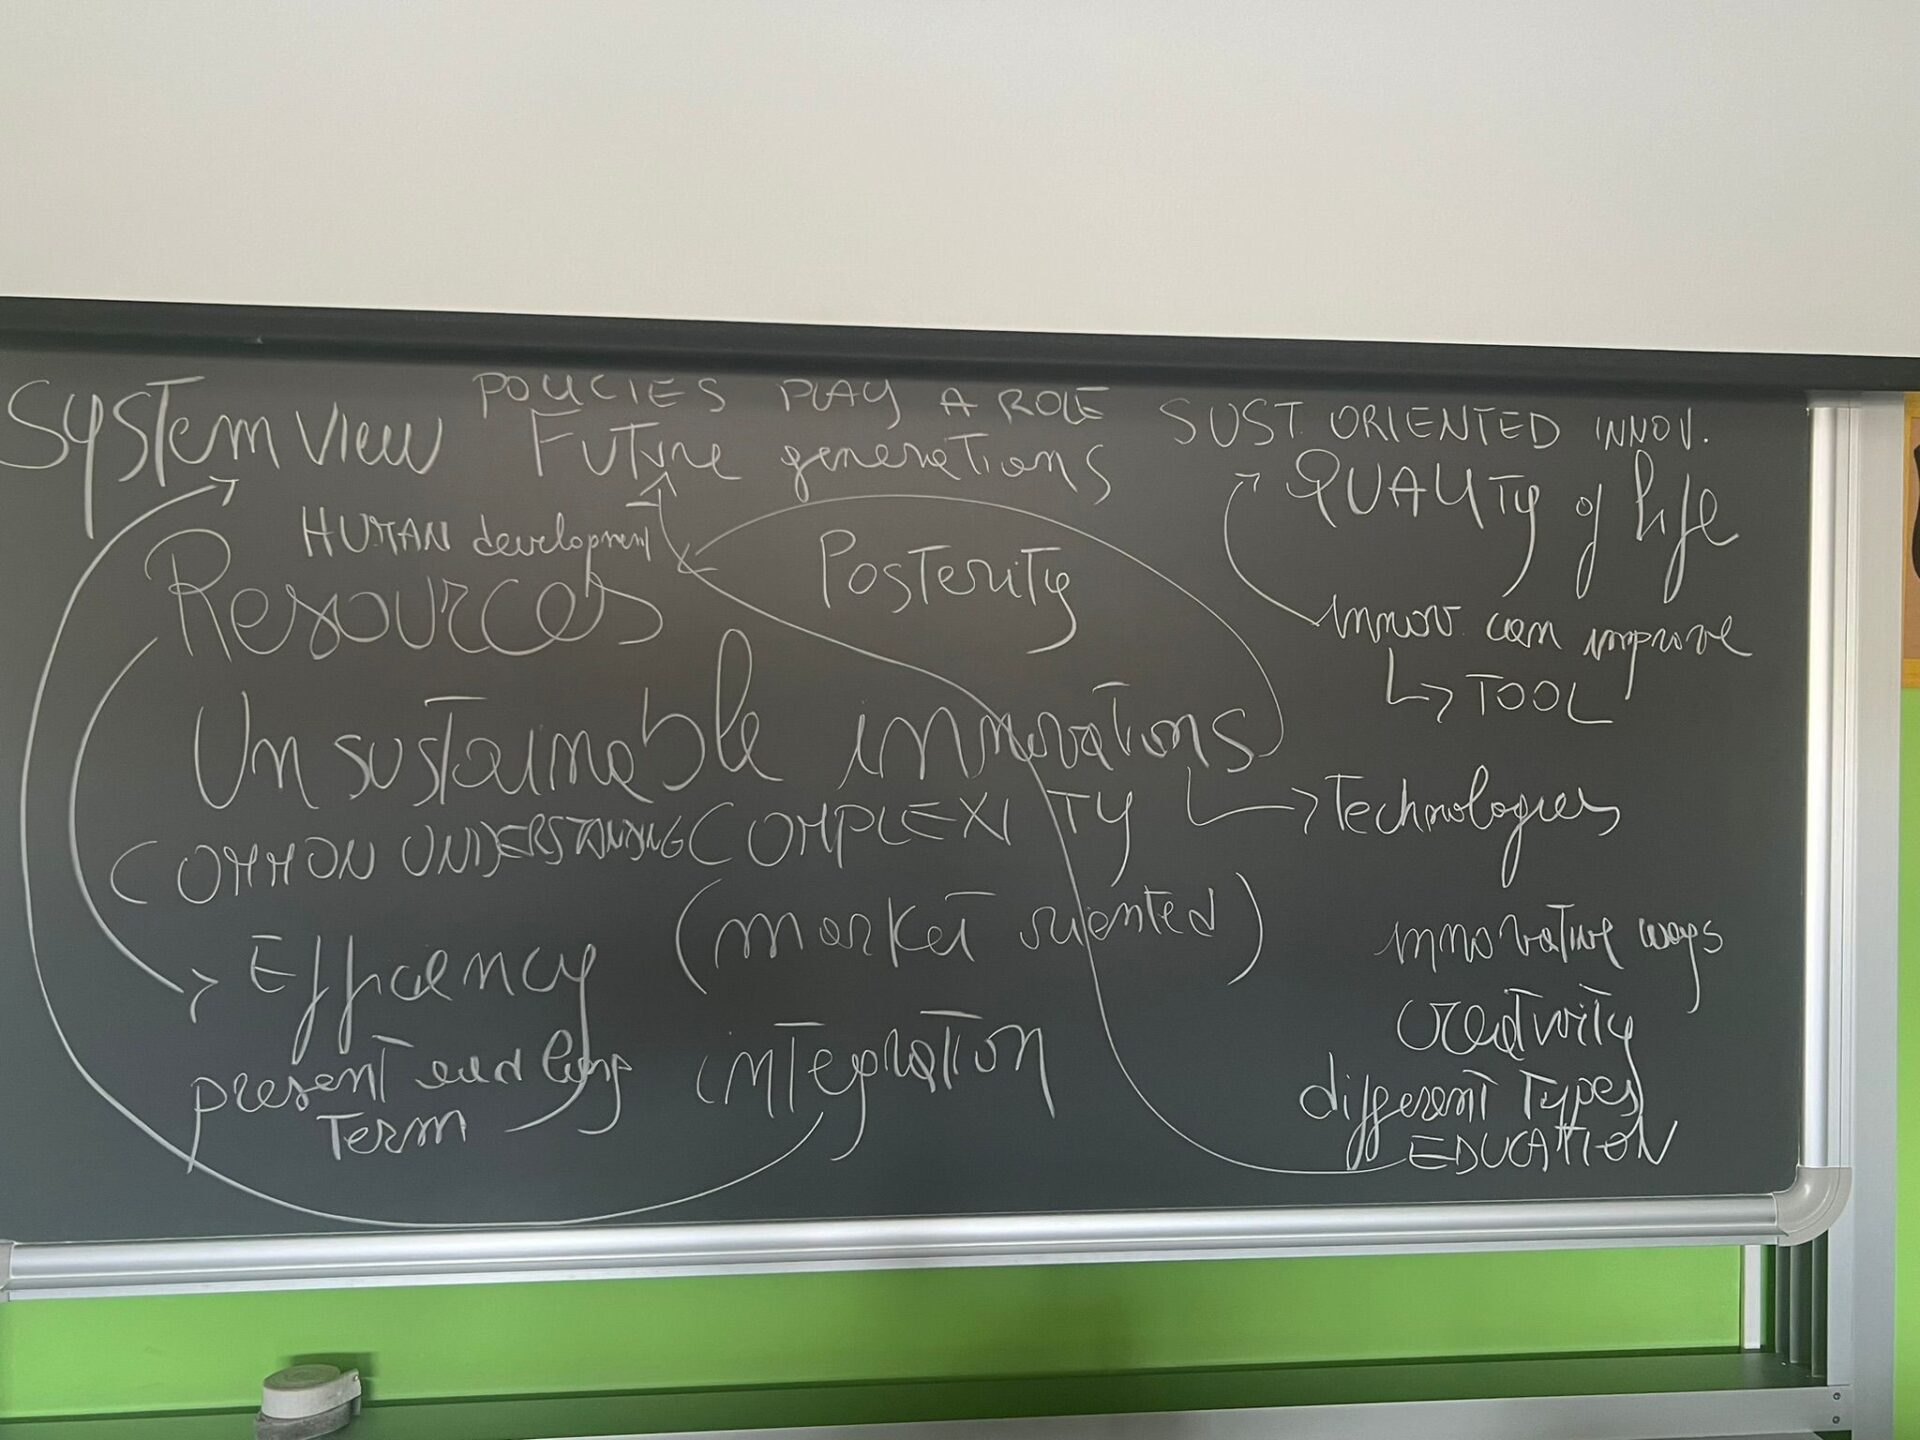 POLICIES PLAY A ROLE
System view
Future generations
SUST. ORIENTED INNOV.
QUALITY of life
HUMAN development
Resources
Posterity
innov. can improve
TOOL
Unsustainable innovations
Technologies
COMMON UNDERSTANDING COMPLEXITY
(market oriented)
Efficiency
innovative ways
creativity
present and long
term
integration
different types
EDUCATION